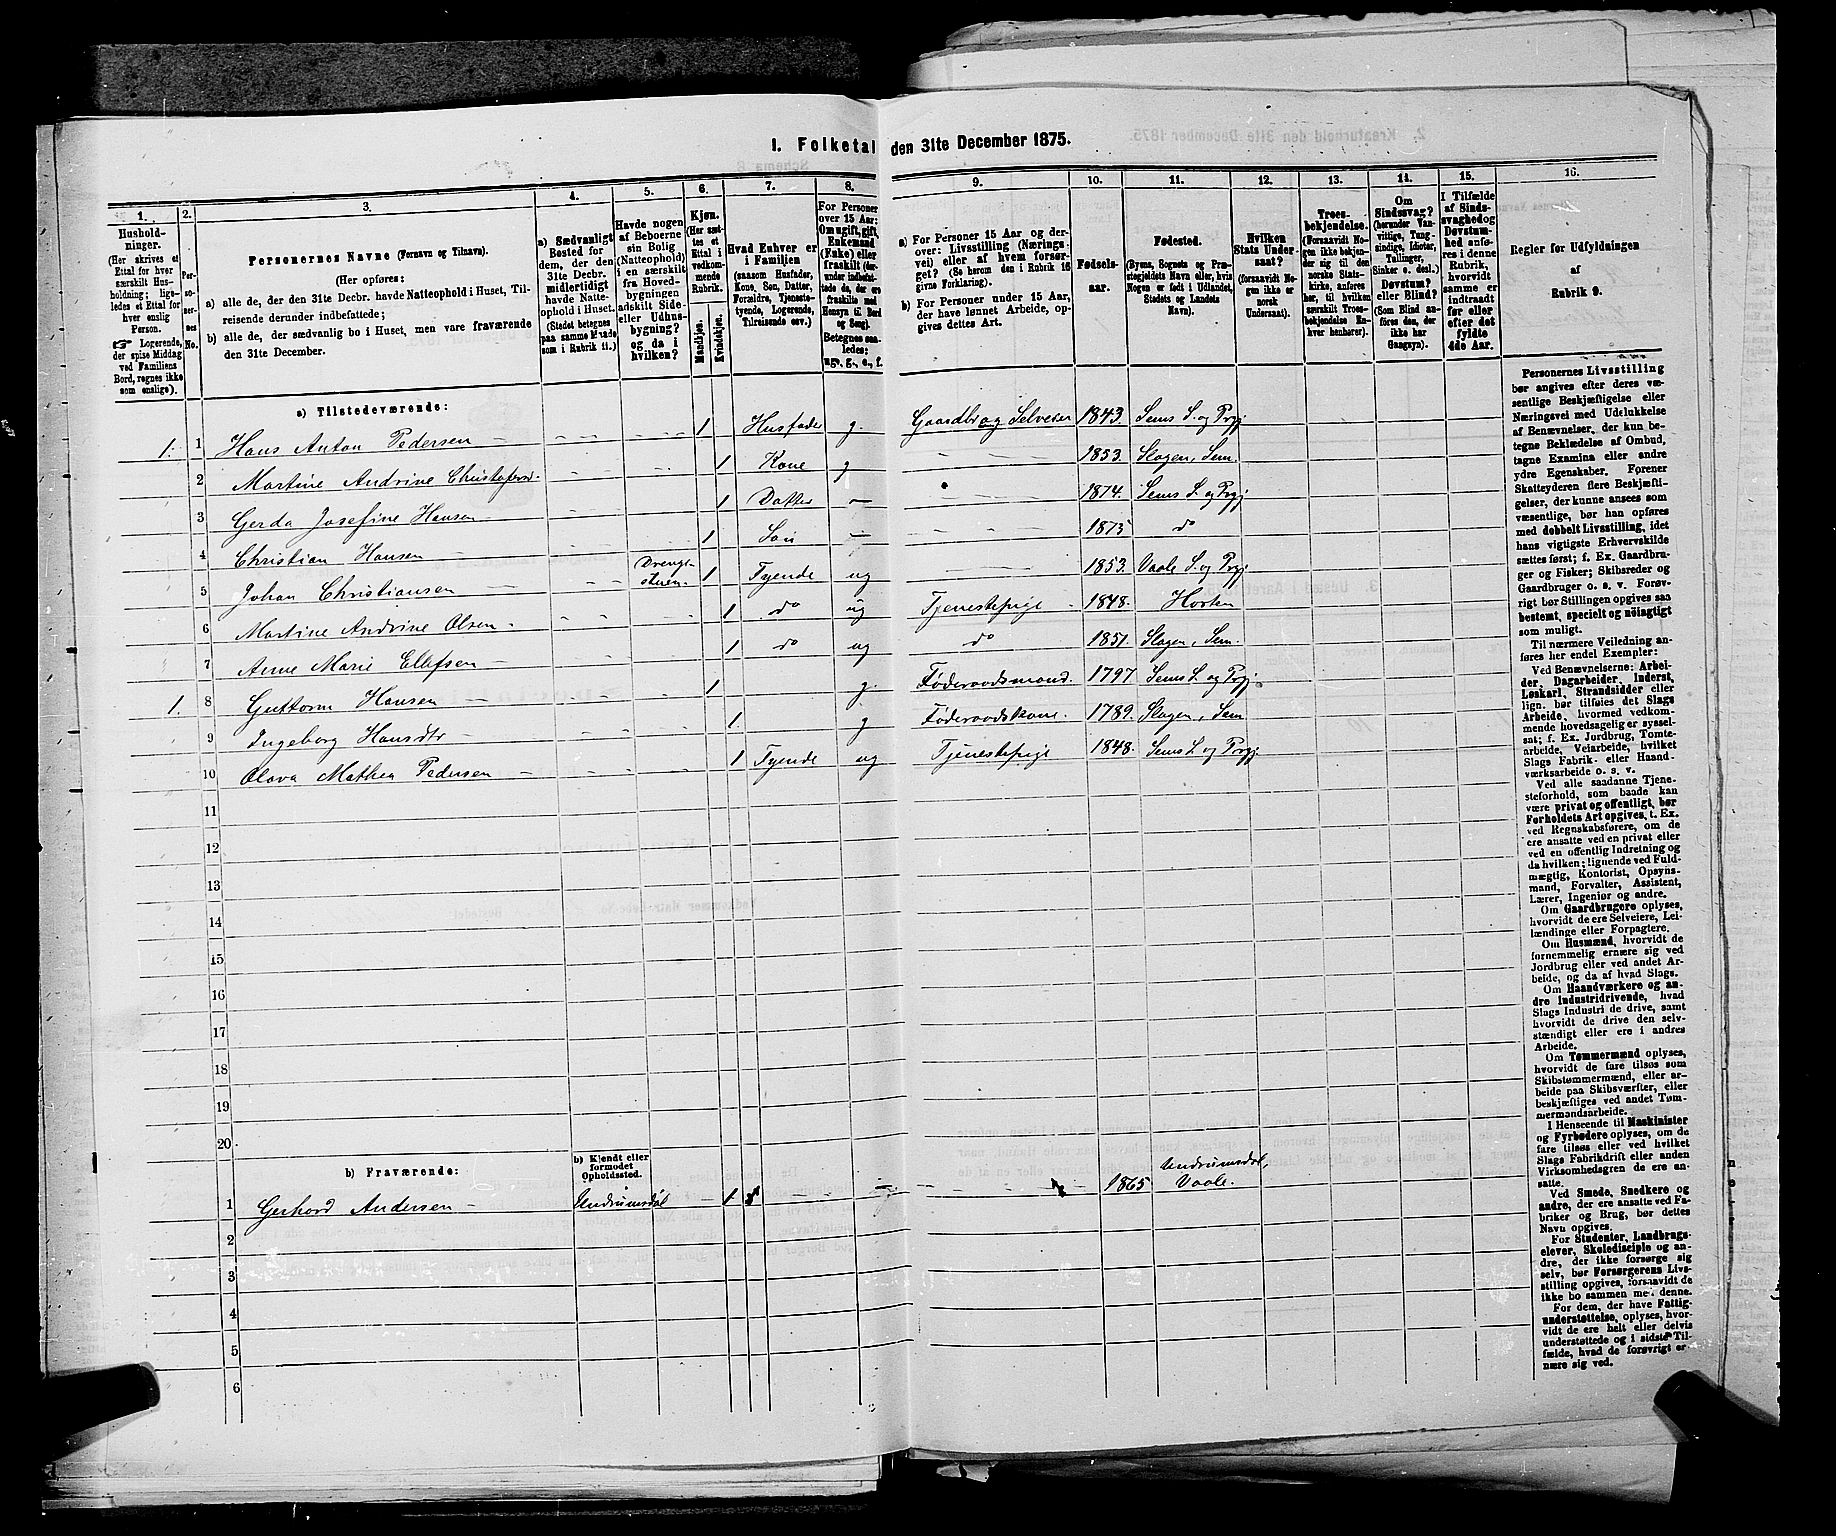 1. Folketal den 31te December 1875.
1. 2. 3. 4. 5. 6. 7. 8. 9. 10. 11. 12. 13. 14. 15. 16.
Hushold-
ninger.
(Her skrives et
Ettal for hver
særskilt Hus-
holdning; lige-
ledes et Ettal for
hver enslig
Person.
☞ Logerende,
der spise Middag
ved Familiens
Bord, regnes ikke
som enslige).
Per-
so-
ner-
nes
No.
Personernes Navne (Fornavn og Tilnavn).
(Her opføres:
a) alle de, der den 31te Decbr. havde Natteophold i Huset, Til-
reisende derunder indbefattede;
b) alle de, der sædvanlig bo i Huset, men vare fraværende
den 31te December.
a) Sædvanligt
Bosted for
dem, der den
31te Decbr.
midlertidigt
havde Natte-
ophold i Huset.
(Stedet betegnes
paa samme Maade
som i Rubrik 11.)
Havde nogen
af Beboerne
sin Bolig
(Natteophold)
i en særskilt
fra Hoved-
bygningen
adskilt Side-
eller Udhus-
bygning?
og da i
hvilken?
Kjøn.
(Her sæt-
tes et
Ettal i
vedkom-
mende
Rubrik.
Mandkjøn.
Kvindekjøn.
Hvad Enhver er
i Familien
(saasom Husfader,
Kone, Søn, Datter,
Forældre, Tjeneste-
tyende, Logerende,
Tilreisende osv.)
For Personer
over 15 Aar:
Om ugift, gift,
Enkemand
(Enke) eller
fraskilt (der-
under indbefat-
tede de, der ere
fraskilte med
Hensyn til Bord
og Seng).
Betegnes saa-
ledes:
ug., g., e., f.
a) For Personer 15 Aar og der-
over: Livsstilling (Nærings-
vei) eller af hvem forsør-
get? (Se herom den i Rubrik 16
givne Forklaring).
b) For Personer under 15 Aar,
der have lønnet Arbeide, op-
gives dettes Art.
Fødsels-
aar.
Fødested.
(Byens, Sognets og Præ-
stegjeldets Navn eller, hvis
Nogen er født i Udlandet,
Stedets og Landets
Navn).
Hvilken
Stats Under-
saat?
(forsaavidt No-
gen ikke er
norsk
Undersaat).
Troes-
bekjendelse.
(Forsaavidt No-
gen ikke bekjen-
der sig til den
norske Stats-
kirke, anføres
her, til hvilken
særskilt Troes-
bekjendelse En-
hver henhører).
Om
Sindssvag?
(herunder Van-
vittige, Tung-
sindige, Idioter,
Tullinger,
Sinker o. desl.)
Døvstum?
eller Blind?
(Som Blind an-
føres den, der
ikke har
Gangsyn).
I Tilfælde
af Sinds-
svaghed og
Døvstum-
hed anfø-
res i denne
Rubrik,
hvorvidt
samme er
indtraadt
før eller
efter det
fyldte
4de Aar.
Regler for Udfyldningen
af
Rubrik 9.
a) Tilstedeværende:
1. 1 Hans Anton Pedersen 1 Husfader g. Gaardbr og Selveier 1843. Sems S. og Prgj
2 Martine Andrine Christofersd. 1 Kone g 1853. Slagen, Sem.
3 Gerda Josefine Hansen 1 Datter 1874. Sems S. og Prgj
4 Christian Hansen 1 Søn 1875 do
5 Johan Christiansen Drenge-
stuen 1 Tyende ug 1853. Vaale S. og Prgj
6 Martine Andrine Olsen 1 do ug Tjenestepige 1848. Horten
7 Anne Marie Ellefsen 1 do ug do 1851. Slagen, Sem.
1. 8 Guttorm Hansen 1 g. Føderaadsmand. 1797 Sems S. og Prgj.
9 Ingeborg Hansdtr 1. g Føderaadskone. 1789. Slagen, Sem
10 Olava Mathea Pedersen 1 Tyende ug Tjenestepige 1848. Sems S. og Prgj
11
12
13
14
15
16
17
18
19
20
b) Fraværende:
b) Kjendt eller
formodet
Opholdssted.
1 Gerhard Andersen Undrumsdal 1 1865 Undrumsdal,
Vaale.
2
3
4
5
6
Personernes Livsstilling
bør angives efter deres væ-
sentlige Beskjæftigelse eller
Næringsvei med Udelukkelse
af Benævnelser, der kun be-
tegne Beklædelse af Ombud,
tagne Examina eller andre
ydre Egenskaber. Forener
Skatteyderen flere Beskjæfti-
gelser, der kunne ansees som
væsentlige, bør han opføres
med dobbelt Livsstilling, idet
hans vigtigste Erhvervskilde
sættes først; f. Ex. Gaardbru-
ger og Fisker; Skibsreder og
Gaardbruger o. s. v. Forøv-
rigt bør Stillingen opgives saa
bestemt, specielt og nöiagtigt
som muligt.
Til nærmere Veiledning an-
føres her endel Exempler:
Ved Benævnelserne: Arbei-
der, Dagarbeider, Inderst,
Løskarl, Strandsidder eller
lign. bør tilføies det Slags
Arbeide, hvormed vedkom-
mende hovedsagelig er syssel-
sat; f. Ex. Jordbrug, Tomte-
arbeide, Veiarbeide, hvilket
Slags Fabrik- eller Haand-
værksarbeide o. s. v.
Ved alle saadanne Tjene-
steforhold, som baade kan
være privat og offentligt, bør
Forholdets Art opgives, t. Ex.
ved Regnskabsførere, om de
ere ansatte ved en privat eller
ved en offentlig Indretning og
da hvilken; lignende ved Fuld-
mægtig, Kontorist, Opsyns-
mand, Forvalter, Assistent,
Lærer, Ingeniør og andre.
Om Gaardbrugere oplyses,
hvorvidt de ere Selveiere, Lei-
lændinge eller Forpagtere.
Om Husmænd, hvorvidt de
fornemmelig ernære sig ved
Jordbrug eller ved andet Ar-
beide, og da af hvad Slags.
Om Haandværkere og an-
dre Industridrivende, hvad
Slags Industri de drive, samt
hvorvidt de drive den selv-
stændigt eller ere i andres
Arbeide.
Om Tømmermænd oplyses,
hvorvidt de fare tilsøs som
Skibstømmermænd, eller ar-
beide paa Skibsværfter, eller
beskjæftiges ved andet Tøm-
mermandsarbeide.
I Henseende til Maskinister
og Fyrbødere oplyses, om de
fare tilsøs eller ved hvilket
Slags Fabrikdrift eller anden
Virksomhedsgren de ere an-
satte.
Ved Smede, Snedkere og
andre, der ere ansatte ved Fa-
briker og Brug, bør dettes
Navn opgives.
For Studenter, Landbrugs-
elever, Skoledisciple og an-
dre, der ikke forsørge sig
selv, bør Forsørgerens Livs-
stilling opgives, forsaavidt de
ikke bo sammen med denne.
For dem, der have Fattig-
understøttelse, oplyses, hvor-
vidt de ere helt eller delvis
understøttede og i sidste Til-
fælde, hvad de forøvrigt er-
nære sig ved.